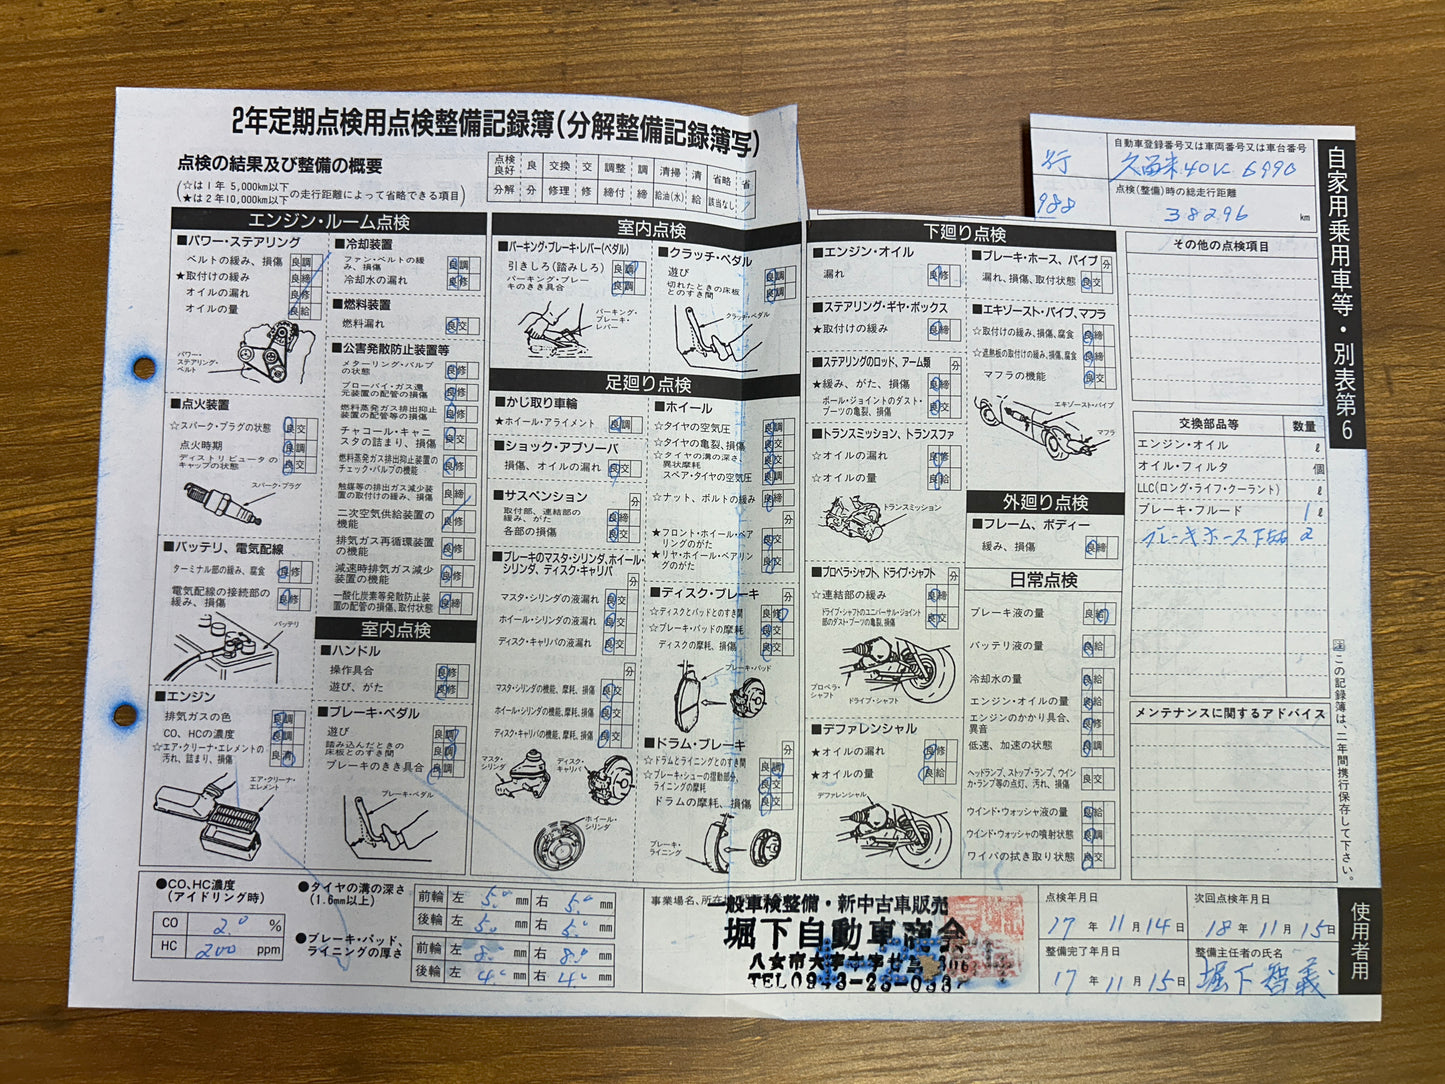 2年定期点検用点検整備記録簿(分解整備記録簿写)
点検の結果及び整備の概要
(☆は1年 5,000km以下
★は2年10,000km以下の走行距離によって省略できる項目)
点検良好 良 交換 交 調整 調 清掃 清 省略 省
分解 分 修理 修 締付 締 給油(水) 給 該当なし
行
988
自動車登録番号又は車両番号又は車台番号
点検(整備)時の総走行距離
38296 km
自家用乗用車等・別表第6
エンジン・ルーム点検
■パワー・ステアリング
ベルトの緩み、損傷 良 調
★取付けの緩み 良 締
オイルの漏れ 良 修
オイルの量 良 給
パワー・ステアリング・ベルト
■点火装置
☆スパーク・プラグの状態 良 交
点火時期 良 調
ディストリビュータのキャップの状態 良 交
スパーク・プラグ
■バッテリ、電気配線
ターミナル部の緩み、腐食 良 修
電気配線の接続部の緩み、損傷 良 修
バッテリ
■エンジン
排気ガスの色 良 調
CO、HCの濃度 良 調
☆エア・クリーナ・エレメントの汚れ、詰まり、損傷 良 清
エア・クリーナ・エレメント
■冷却装置
ファン・ベルトの緩み、損傷 良 調
冷却水の漏れ 良 修
■燃料装置
燃料漏れ 良 交
■公害発散防止装置等
メターリング・バルブの状態 良 修
ブローバイ・ガス還元装置の配管の損傷 良 修
燃料蒸発ガス排出抑止装置の配管等の損傷 良 交
チャコール・キャニスタの詰まり、損傷 良 交
燃料蒸発ガス排出抑止装置のチェック・バルブの機能 良 修
触媒等の排出ガス減少装置の取付けの緩み、損傷 良 締
二次空気供給装置の機能 良 修
排気ガス再循環装置の機能 良 修
減速時排気ガス減少装置の機能 良 修
一酸化炭素等発散防止装置の配管の損傷、取付状態 良 締
室内点検
■ハンドル
操作具合 良 修
遊び、がた 良 修
■ブレーキ・ペダル
遊び 良 調
踏み込んだときの床板とのすき間 良 調
ブレーキのきき具合 良 調
ブレーキ・ペダル
室内点検
■パーキング・ブレーキ・レバー(ペダル)
引きしろ(踏みしろ) 良 調
パーキング・ブレーキのきき具合 良 調
パーキング・ブレーキ・レバー
■クラッチ・ペダル
遊び 良 調
切れたときの床板とのすき間 良 調
クラッチ・ペダル
足廻り点検
■かじ取り車輪
★ホイール・アライメント 良 調
■ショック・アブソーバ
損傷、オイルの漏れ 良 交
■サスペンション 分
取付部、連結部の緩み、がた 良 締
各部の損傷 良 交
■ブレーキのマスタ・シリンダ、ホイール・シリンダ、ディスク・キャリパ 分
マスタ・シリンダの液漏れ 良 交
ホイール・シリンダの液漏れ 良 交
ディスク・キャリパの液漏れ 良 交
分
マスタ・シリンダの機能、摩耗、損傷 良 交
ホイール・シリンダの機能、摩耗、損傷 良 交
ディスク・キャリパの機能、摩耗、損傷 良 交
マスタ・シリンダ
ディスク・キャリパ
ホイール・シリンダ
■ホイール
☆タイヤの空気圧 良 調
☆タイヤの亀裂、損傷 良 交
☆タイヤの溝の深さ、異状摩耗 良 交
スペア・タイヤの空気圧 良 調
☆ナット、ボルトの緩み 良 締
★フロント・ホイール・ベアリングのがた 良 交
★リヤ・ホイール・ベアリングのがた 良 交
■ディスク・ブレーキ 分
☆ディスクとパッドとのすき間 良 修
☆ブレーキ・パッドの摩耗 良 交
ディスクの摩耗、損傷 良 交
ブレーキ・パッド
■ドラム・ブレーキ 分
☆ドラムとライニングとのすき間 良 調
☆ブレーキ・シューの摺動部分、ライニングの摩耗 良 交
ドラムの摩耗、損傷 良 交
ブレーキ・ライニング
下廻り点検
■エンジン・オイル
漏れ 良 修
■ステアリング・ギヤ・ボックス
★取付けの緩み 良 締
■ステアリングのロッド、アーム類 分
★緩み、がた、損傷 良 締
ボール・ジョイントのダスト・ブーツの亀裂、損傷 良 交
■トランスミッション、トランスファ
☆オイルの漏れ 良 修
☆オイルの量 良 給
トランスミッション
■プロペラ・シャフト、ドライブ・シャフト 分
☆連結部の緩み 良 締
ドライブ・シャフトのユニバーサル・ジョイント部のダスト・ブーツの亀裂、損傷 良 交
プロペラ・シャフト
ドライブ・シャフト
■デファレンシャル
★オイルの漏れ 良 修
★オイルの量 良 給
デファレンシャル
■ブレーキ・ホース、パイプ 分
漏れ、損傷、取付状態 良 交
■エキゾースト・パイプ、マフラ
☆取付けの緩み、損傷、腐食 良 締
☆遮熱板の取付けの緩み、損傷、腐食 良 締
マフラの機能 良 交
エキゾースト・パイプ
マフラ
外廻り点検
■フレーム、ボディー
緩み、損傷 良 締
日常点検
ブレーキ液の量 良 給
バッテリ液の量 良 給
冷却水の量 良 給
エンジン・オイルの量 良 給
エンジンのかかり具合、異音 良 修
低速、加速の状態 良 調
ヘッドランプ、ストップ・ランプ、ウインカ・ランプ等の点灯、汚れ、損傷 良 交
ウインド・ウォッシャ液の量 良 給
ウインド・ウォッシャの噴射状態 良 調
ワイパの拭き取り状態 良 交
その他の点検項目
交換部品等 数量
エンジン・オイル ℓ
オイル・フィルタ 個
LLC(ロング・ライフ・クーラント) ℓ
ブレーキ・フルード 1 ℓ
メンテナンスに関するアドバイス
注 この記録簿は、二年間携行保存して下さい。
●CO、HC濃度
(アイドリング時)
CO 2.0 %
HC 200 ppm
●タイヤの溝の深さ
(1.6mm以上)
前輪 左 5.0 mm 右 5.0 mm
後輪 左 5.0 mm 右 5.0 mm
●ブレーキ・パッド、ライニングの厚さ
前輪 左 8.0 mm 右 8.0 mm
後輪 左 4.0 mm 右 4.0 mm
事業場名、所在地
一般車検整備・新中古車販売
堀下自動車商会
八女市大字
TEL0943-23-033
点検年月日
17年11月14日
次回点検年月日
18年11月15日
整備完了年月日
17年11月15日
整備主任者の氏名
堀下智義
使用者用